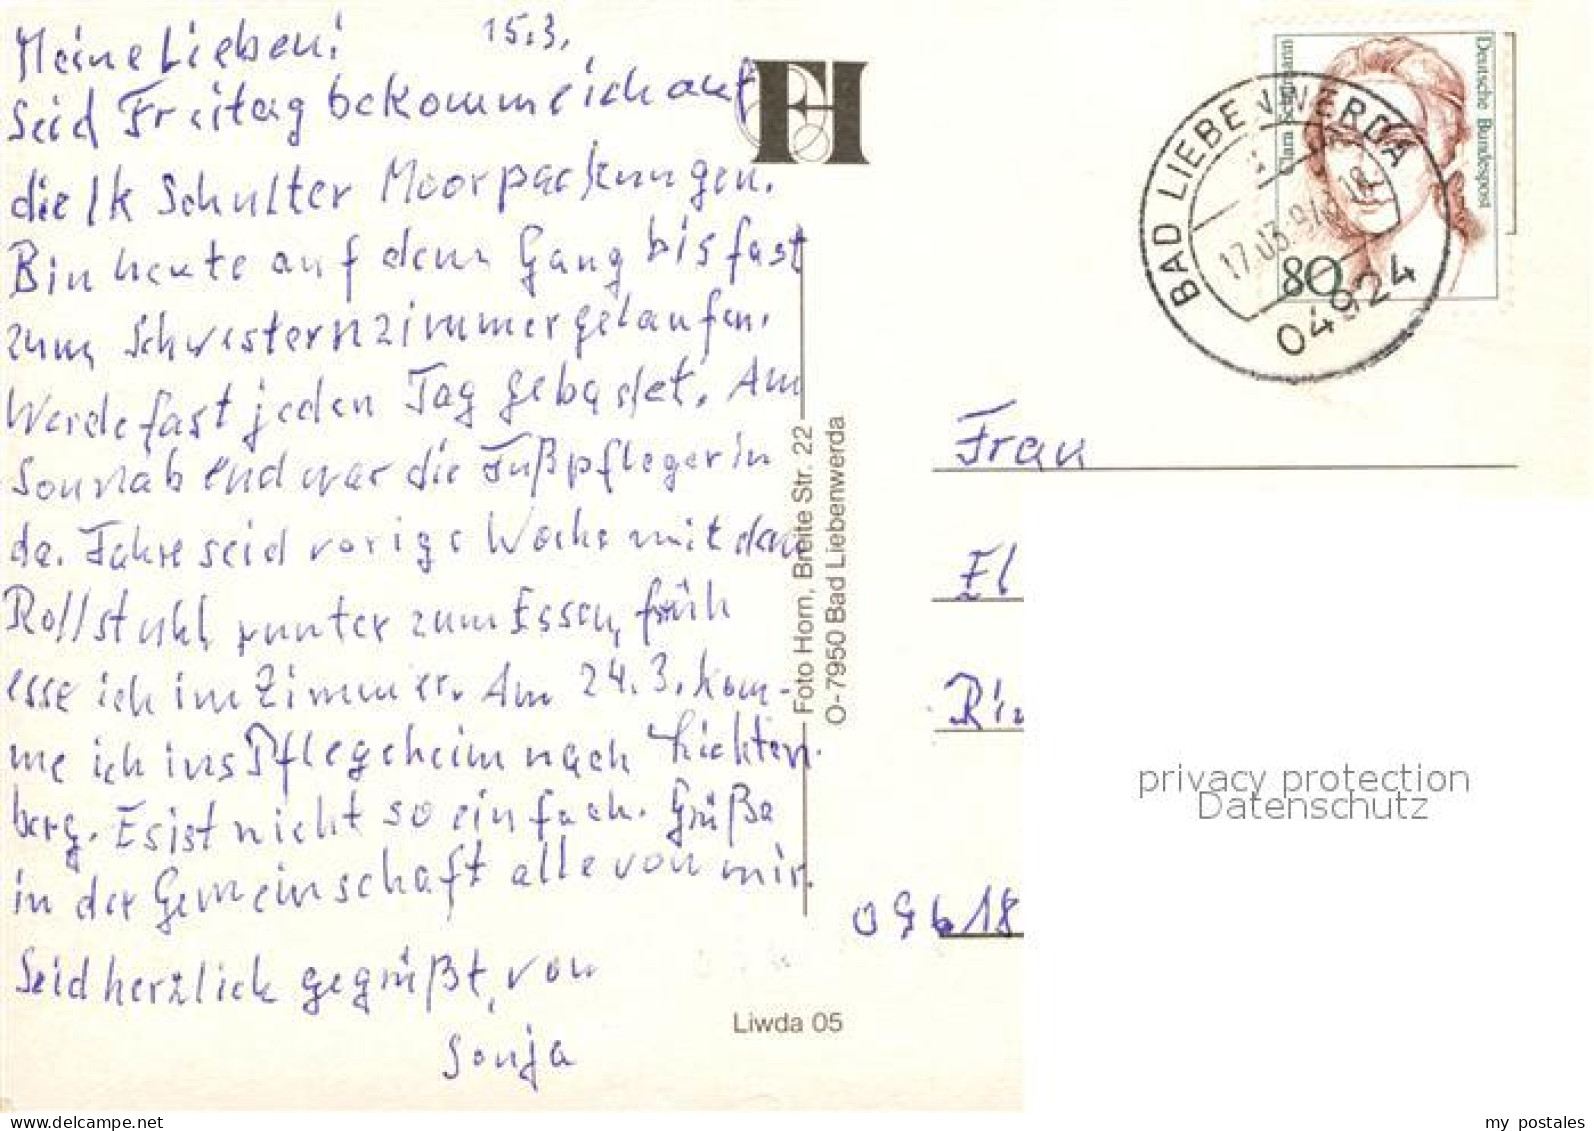 Meine Lieben! 15.3.
Seid Freitag bekomme ich auf
die lk Schulter Moorpackungen.
Bin heute auf dem Gang bis fast
zum Schwesternzimmer gelaufen.
Werde fast jeden Tag gebadet. Am
Sonnabend war die Fußpflegerin
da. Fahre seid vorige Woche mit dem
Rollstuhl runter zum Essen, früh
esse ich im Zimmer. Am 24.3. kom-
me ich ins Pflegeheim nach Lichten-
berg. Es ist nicht so einfach. Grüße
in der Gemeinschaft alle von mir.
Seid herzlich gegrüßt, von
Sonja
FH
Foto Horn, Breite Str. 22
O-7950 Bad Liebenwerda
Liwda 05
Deutsche Bundespost
Clara Schumann
80
BAD LIEBENWERDA
17.03.94
04924
Frau
El
Ri
09618
privacy protection
Datenschutz
www.delcampe.net
my_postales